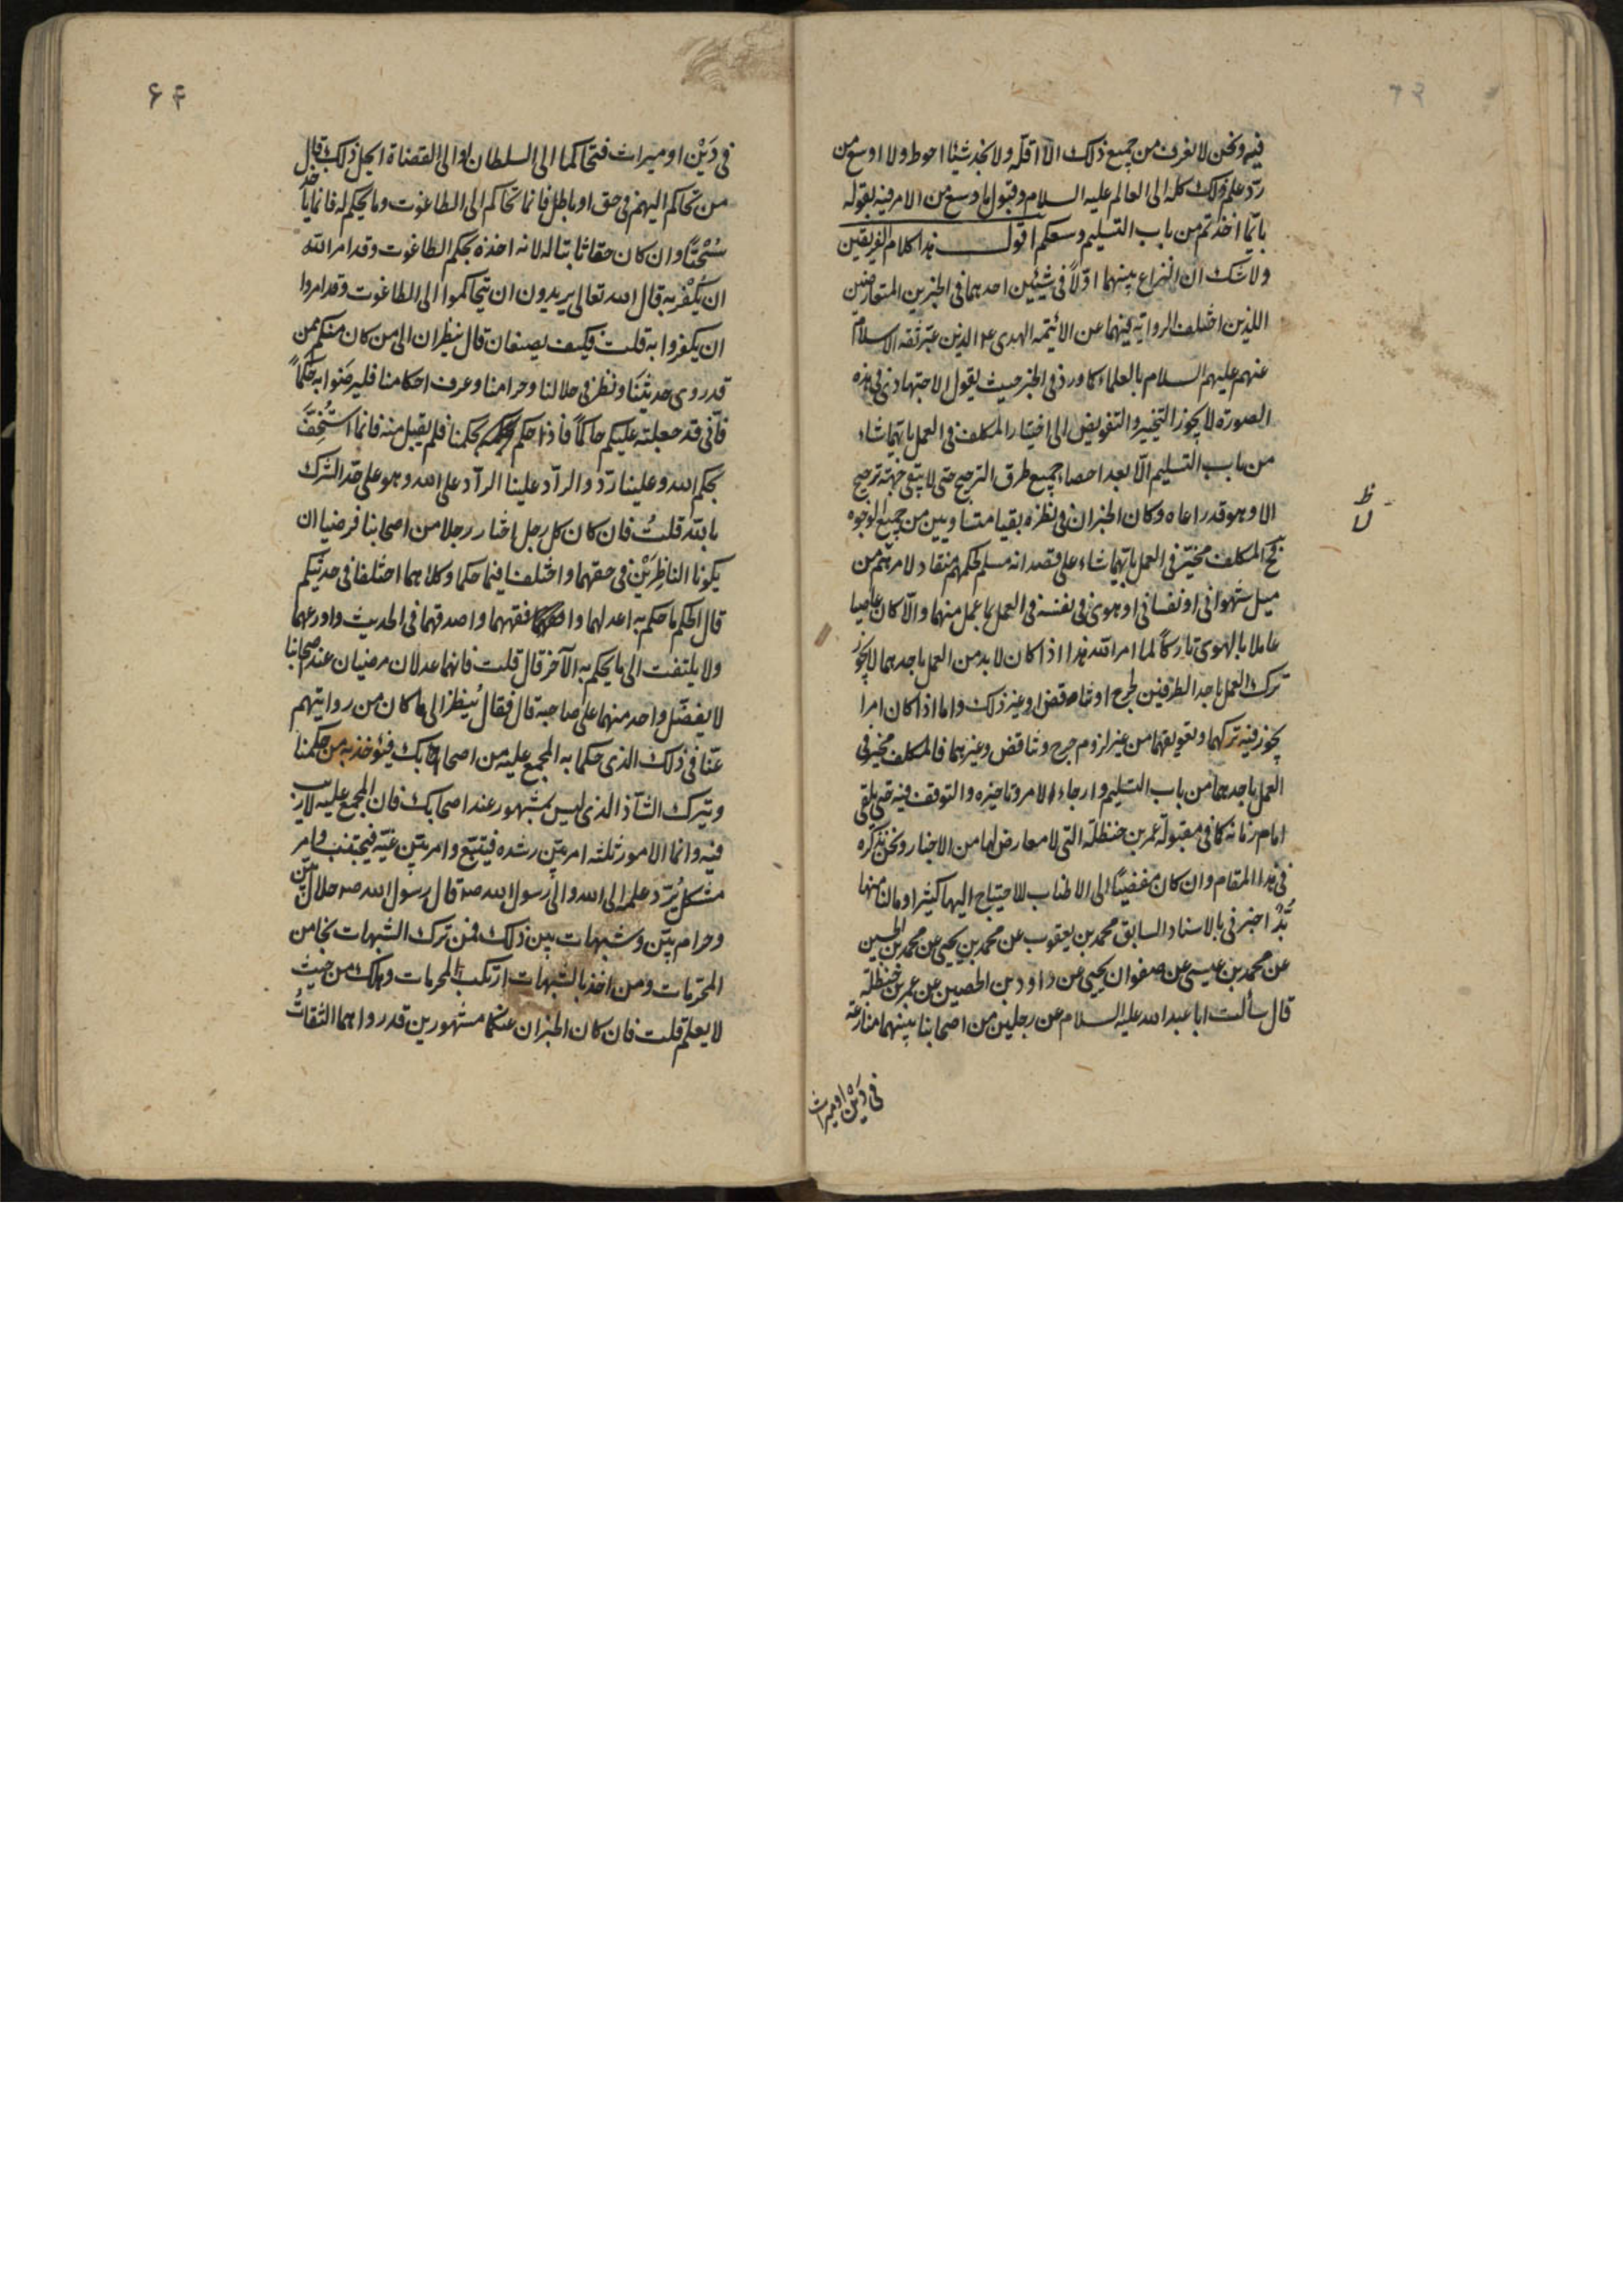 ٦٣
فيه ونحن لا نعرف من جميع ذلك الا اقله ولا نجد شيئا احوط ولا اوسع من
ردّ علم ذلك كله الى العالم عليه السلام وقبول ما وسع من الامر فيه بقوله
بايّما اخذتم من باب التسليم وسعكم اقول هذا كلام الفريقين
ولا شك ان النزاع بينهما اوّلاً في شيئين احدهما في الخبرين المتعارضين
اللذين اختلف الرواية فيهما عن الائيمه الهدى ع الذين عبّر ثقه الاسلام
عنهم عليهم السلام بالعلماء كما ورد في الخبر حيث يقول الاجتهادي في هذه
الصورة لا يجوز التخيير والتفويض الى اختيار المكلف في العمل بايّهما شاء
من باب التسليم الّا بعد احصاء جميع طرق الترجيح حتى لا يبقى جهة ترجيح
الا وهو قد راعاه وكان الخبران في نظره بقيا متساويين من جميع الوجوه
فح المكلف مخيّر في العمل بايّهما شاء على قصد انه مسلم لحكمهم منقاد لامرهم من
ميل شهواني او نفساني او هوى في نفسه في العمل بما عمل منهما والّا كان عاصيا
ظ
لا
عاملا بالهوى تاركاً لما امر الله هذا اذا كان لا بد من العمل باحدهما لا يجوز
ترك العمل باحد الطرفين لحرج او تناقض او غير ذلك واما اذا كان امرا
يجوز فيه تركهما وتعويقهما من غير لزوم حرج وتناقض وغيرهما فالمكلف مخير في
العمل باحدهما من باب التسليم وارجاء الامر وتاخيره والتوقف فيه حتى يلقى
امام زمانه كما في مقبولة عمر بن حنظلة التي لا معارض لها من الاخبار ونحن نذكره
في هذا المقام وان كان مفضيًا الى الاطناب للاحتياج اليها كثيرا وما لنا منها
بُدّ اخبرني بالاسناد السابق محمد بن يعقوب عن محمد بن يحيى عن محمد بن الحسين
عن محمد بن عيسى عن صفوان يحيى عن داود بن الحصين عن عمر بن حنظلة
قال سألت ابا عبد الله عليه السلام عن رجلين من اصحابنا بينهما منازعة
في دَيْن او ميراث
۶۴
في دَيْن او ميراث فتحاكما الى السلطان او الى القضاة ايحل ذلك قال
من تحاكم اليهم في حق او باطل فانما تحاكم الى الطاغوت وما يحكم له فانما ياخذ
سُحْتًا وان كان حقا ثابتا له لانه اخذه بحكم الطاغوت وقد امر الله
ان يُكفر به قال الله تعالى يريدون ان يتحاكموا الى الطاغوت وقد امروا
ان يكفروا به قلت فكيف يصنعان قال ينظران الى من كان منكم ممن
قد روى حديثنا ونظر في حلالنا وحرامنا وعرف احكامنا فليرضوا به حَكَماً
فاني قد جعلته عليكم حاكماً فاذا حكم بحكمنا فلم يقبل منه فانما استُخِفَّ
بحكم الله وعلينا ردّ والرآد علينا الرآد على الله وهو على حدّ الشرك
بالله قلتُ فان كان كل رجل اختار رجلا من اصحابنا فرضيا ان
يكونا الناظِرَيْن في حقهما واختلفا فيما حكما وكلاهما اختلفا في حديثكم
قال الحكم ما حكم به اعدلهما وافقههما واصدقهما في الحديث واورعهما
ولا يلتفت الى ما يحكم به الآخر قال قلت فانهما عدلان مرضيان عند اصحابنا
لا يفضّل واحد منهما على صاحبه قال فقال يُنظر الى ما كان من روايتهم
عنّا في ذلك الذي حكما به المجمع عليه من اصحابك فيُؤخذ به من حكمنا
ويترك الشاذ الذي ليس بمشهور عند اصحابك فان المجمع عليه لا ريب
فيه وانما الامور ثلثه امر بيّن رشده فيتبع وامر بيّن غيّه فيجتنب وامر
مشكل يُردّ علمه الى الله والى رسول الله ص قال رسول الله ص حلال بيّن
وحرام بيّن وشبهات بين ذلك فمن ترك الشبهات نجا من
المحرّمات ومن اخذ بالشبهات ارتكب المحرمات وهلك من حيث
لا يعلم قلت فان كان الخبران عنكما مشهورين قد رواهما الثقاتُ